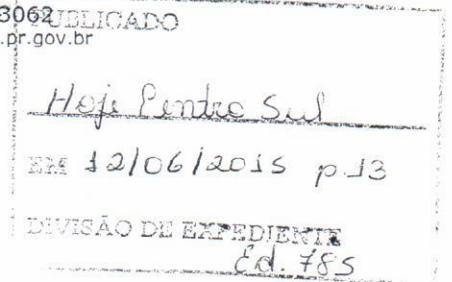 3062
PUBLICADO
.pr.gov.br
Hoje Centro Sul
EM 12/06/2015 p.13
DIVISÃO DE EXPEDIENTE
Éd. 785